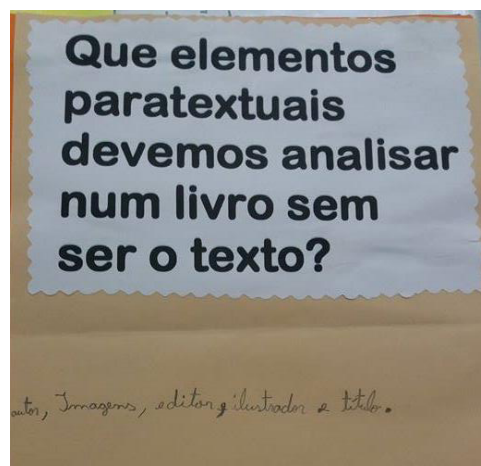 Que elementos
paratextuais
devemos analisar
num livro sem
ser o texto?
autor, Imagens, editor, ilustrador e título.